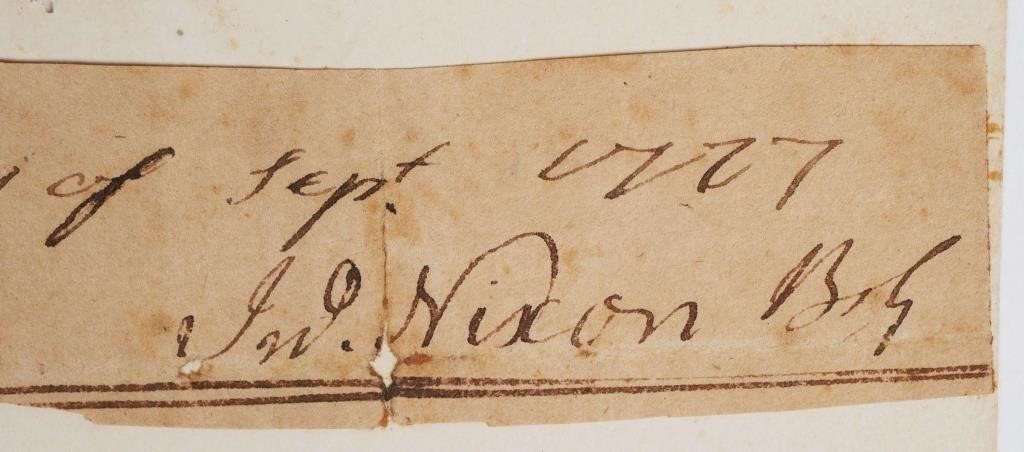 of Sept. 1777
Jno. Nixon B G